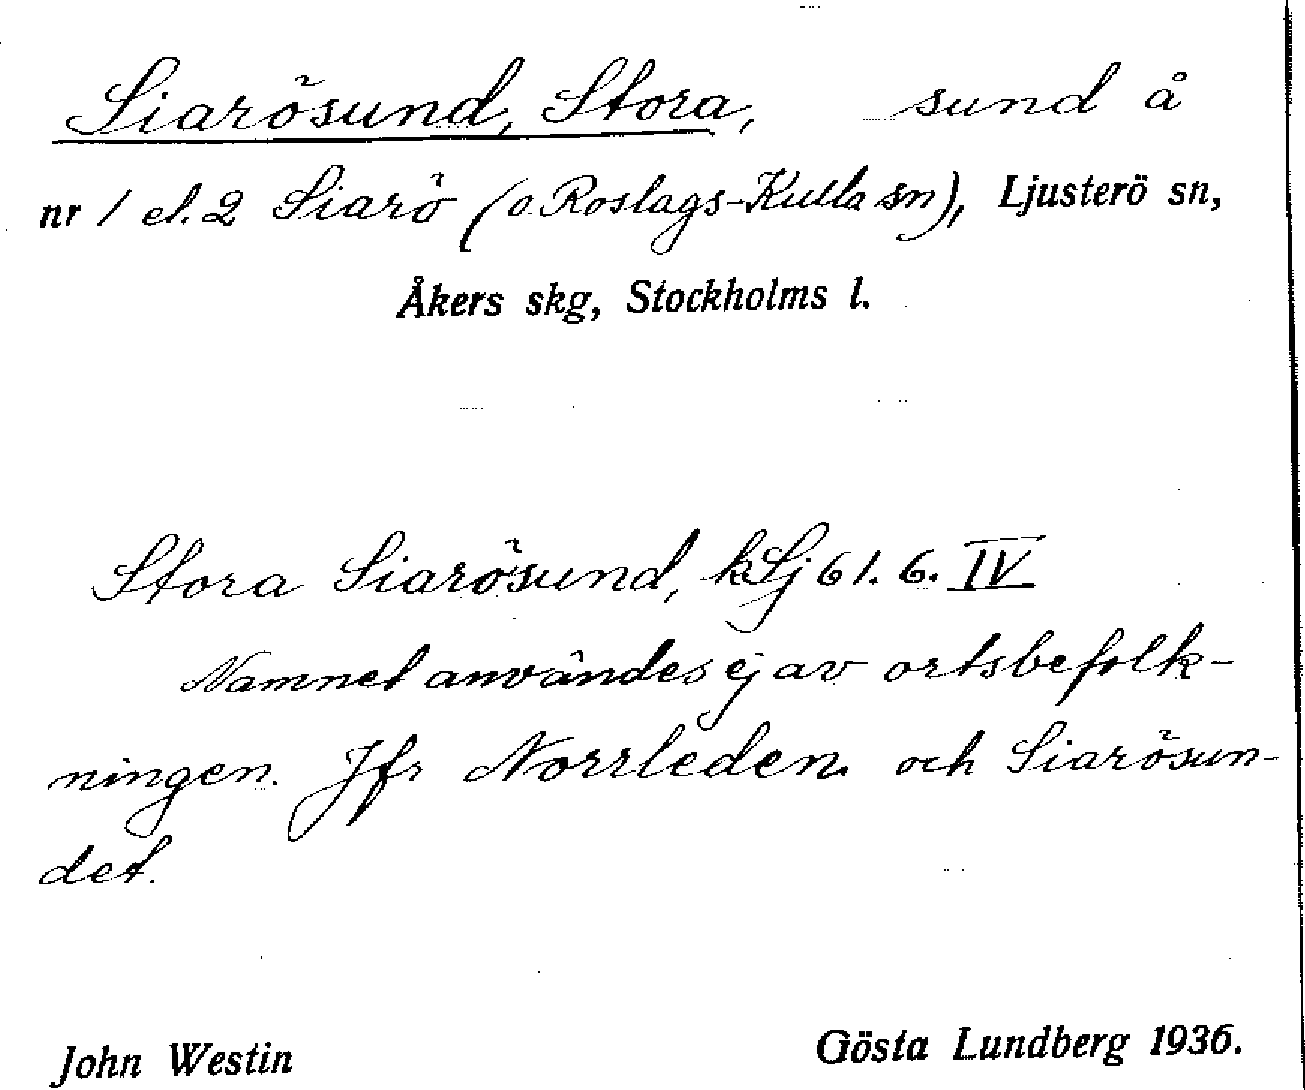 Siarösund, Stora, sund å
nr 1 el. 2 Siarö (o. Roslags-Kulla sn), Ljusterö sn,
Åkers skg, Stockholms l.
Stora Siarösund, kSj 61. 6. IV
Namnet användes ej av ortsbefolk-
ningen. Jfr Norrleden och Siarösun-
det.
John Westin Gösta Lundberg 1936.